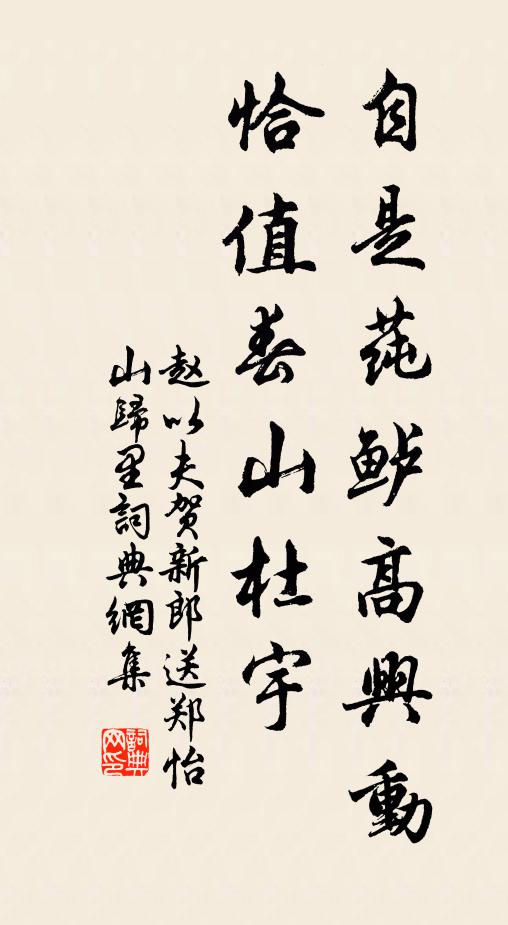 自是莼鲈高興動
恰值春山杜宇
赵以夫贺新郎送郑怡
山歸里詞典網集
詞典网印